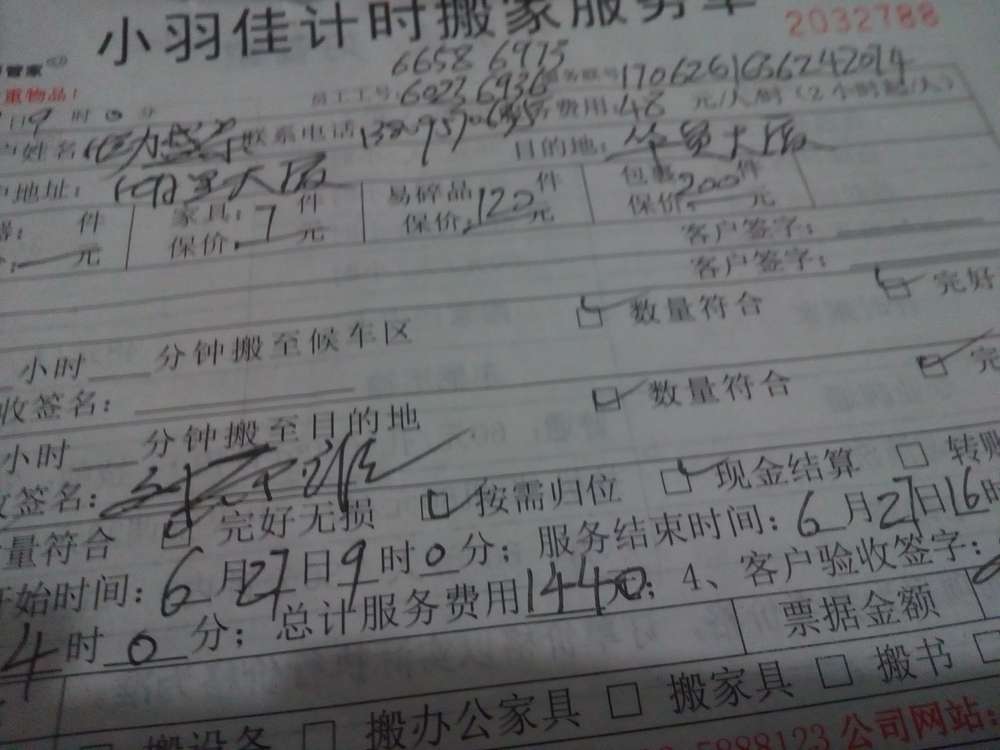 小羽佳计时搬家服务单
2032788
管家
重物品！
6658 6973
员工工号：6023 6936 服务账号：1706261636242014
日9时0分
费用：48元/人/时（2小时起/人）
户姓名 联系电话 目的地：华昊大厦
户地址： 大厦
器： 件 家具： 件 易碎品 件 包裹 件
元 保价：7元 保价：120元 保价：200元
客户签字：
客户签字：
小时 分钟搬至候车区 数量符合 完好
收签名：
小时 分钟搬至目的地 数量符合 完
收签名：
量符合 完好无损 按需归位 现金结算 转账
开始时间：6月27日9时0分；服务结束时间：6月27日16时
4时0分；总计服务费用1440元；4、客户验收签字：
票据金额
搬设备 搬办公家具 搬家具 搬书
5988123 公司网站：